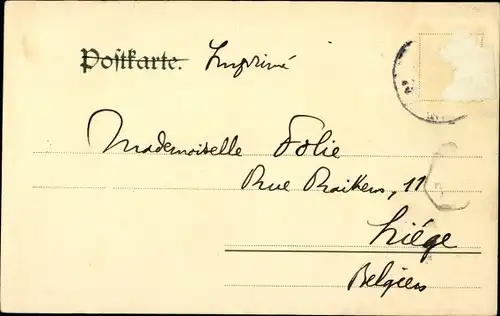 Postkarte. Imprimé
Mademoiselle Folie
Rue Raikem, 11
Liége
Belgien